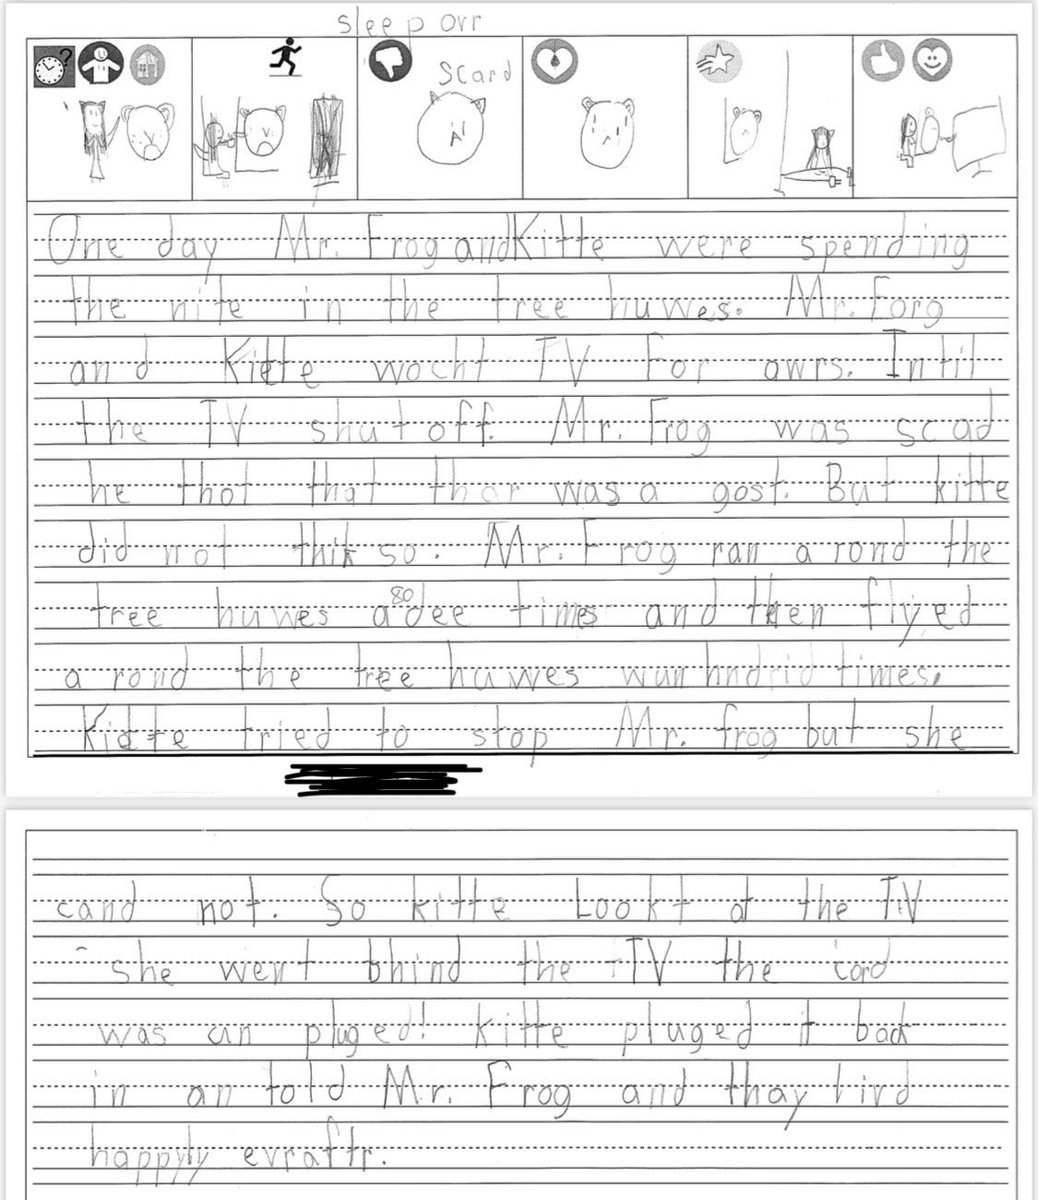 sleep ovr
?
Scard
One day Mr. Frog and Kitte were spending
the nite in the tree huwes. Mr. Forg
and Kitte wocht TV For awrs. Intil
the TV shut off. Mr. Frog was scad
he thot that thar was a gost. But kitte
did not thik so. Mr. Frog ran a rond the
80
tree huwes adee times and then flyed
a rond the tree huwes wun hndrid times.
Kidte tried to stop Mr. frog but she
cand not. So kitte Lookt at the TV
she went bhind the TV the cord
was un pluged! kitte pluged it back
in an told Mr. Frog and thay livd
happyly evraftr.